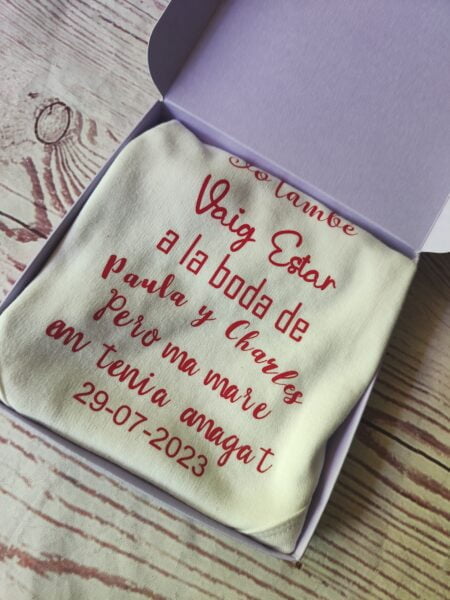 Jo també
Vaig Estar
a la boda de
Paula y Charles
Pero ma mare
am tenia amagat
29-07-2023